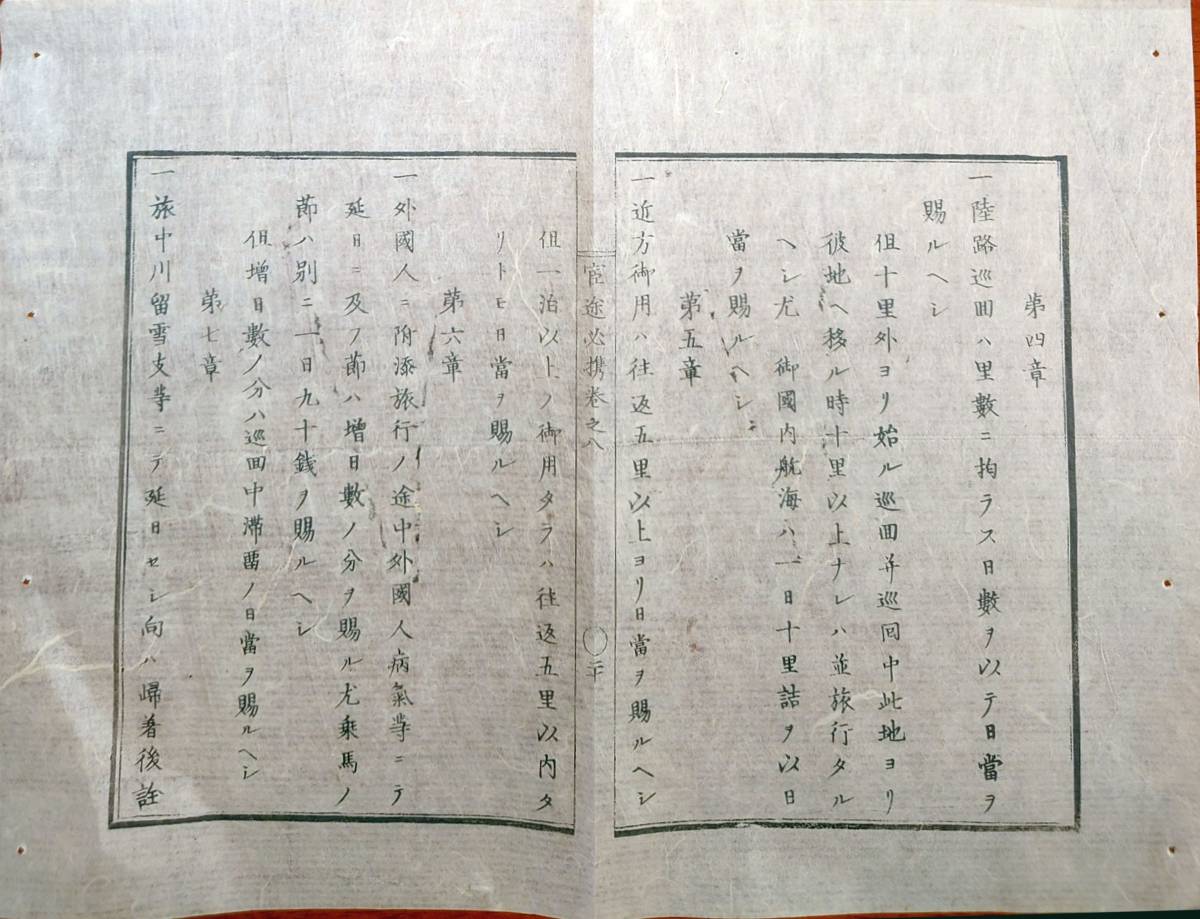 第四章
一陸路巡回ハ里數ニ拘ラス日數ヲ以テ日當ヲ
賜ルヘシ
但十里外ヨリ始ル巡回并巡回中此地ヨリ
彼地ヘ移ル時十里以上ナレハ並旅行タル
ヘシ尤 御國内航海ハ一日十里詰ヲ以日
當ヲ賜ルヘシ
第五章
一近方御用ハ往返五里以上ヨリ日當ヲ賜ルヘシ
官途必携卷之八
二十
但一泊以上ノ御用タラハ往返五里以内タ
リトモ日當ヲ賜ルヘシ
第六章
一外國人ニ附添旅行ノ途中外國人病氣等ニテ
延日ニ及フ節ハ増日數ノ分ヲ賜ル尤乘馬ノ
節ハ別ニ一日九十錢ヲ賜ルヘシ
但増日數ノ分ハ巡回中滯留ノ日當ヲ賜ルヘシ
第七章
一旅中川留雪支等ニテ延日セシ向ハ歸著後詮